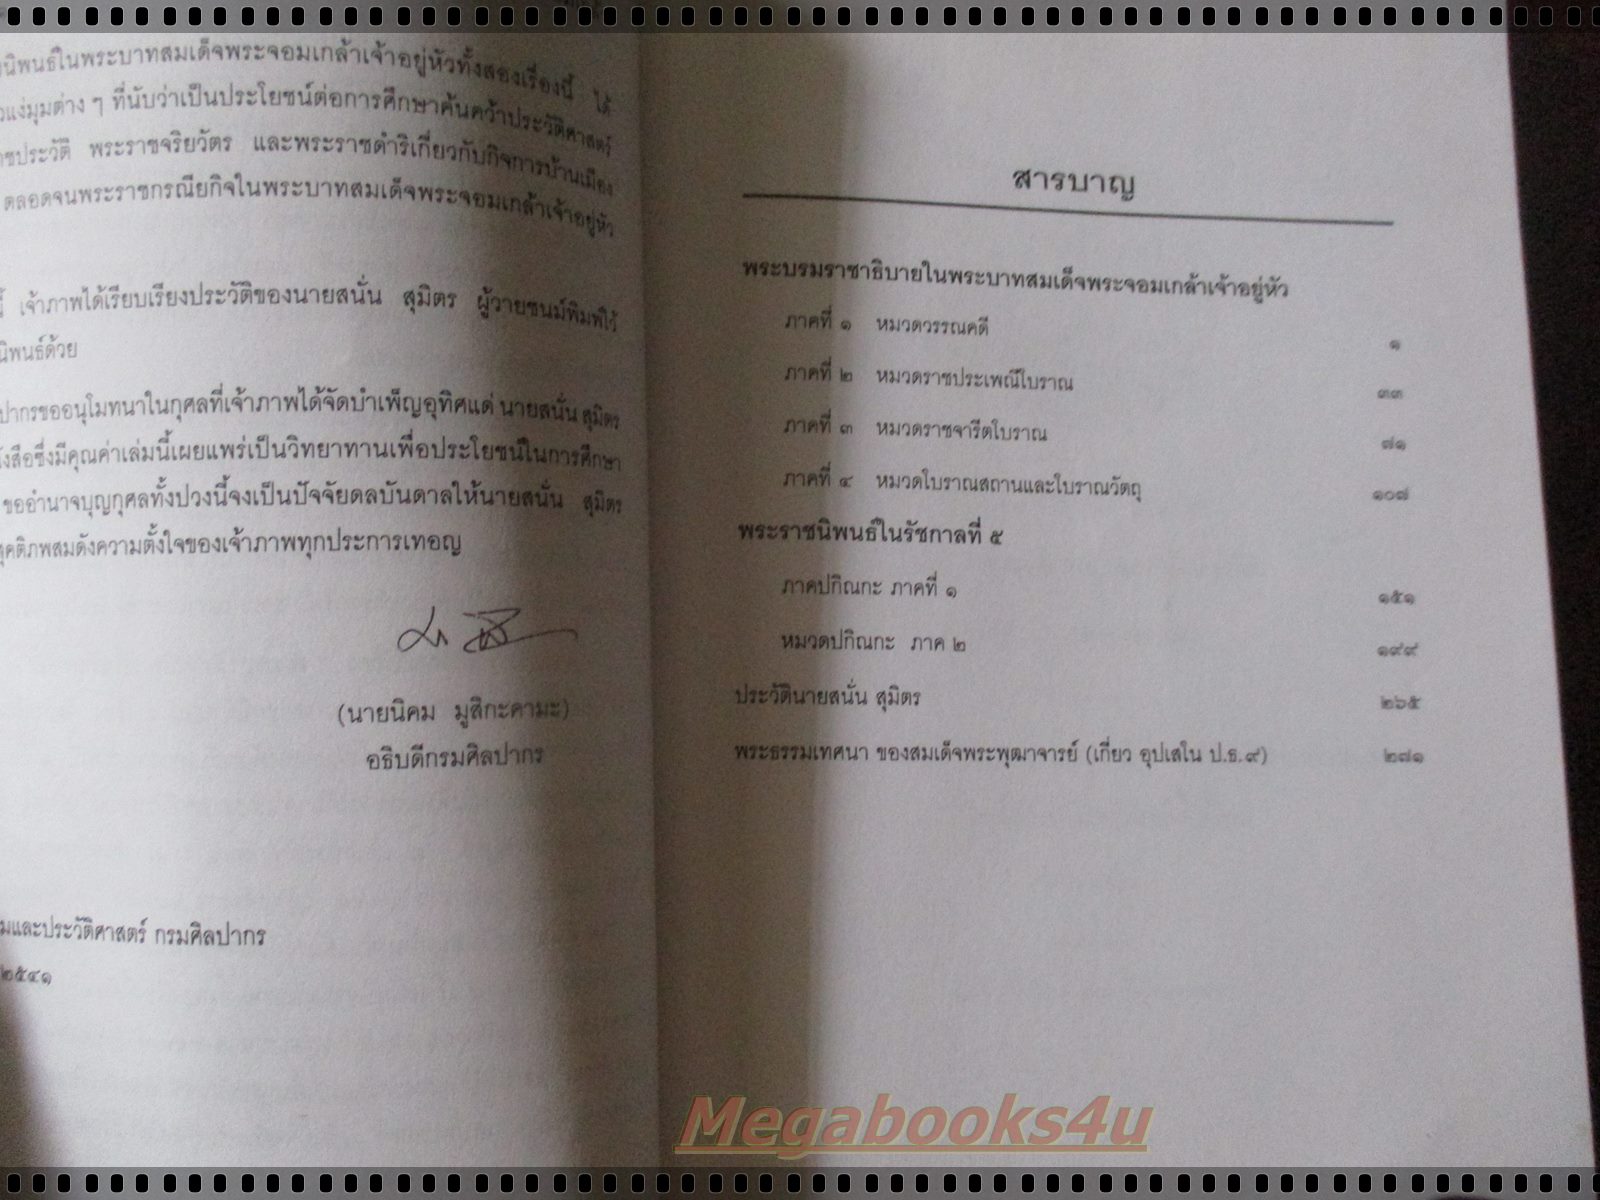 นิพนธ์ในพระบาทสมเด็จพระจอมเกล้าเจ้าอยู่หัวทั้งสองเรื่องนี้ ได้
แง่มุมต่าง ๆ ที่นับว่าเป็นประโยชน์ต่อการศึกษาค้นคว้าประวัติศาสตร์
ชประวัติ พระราชจริยวัตร และพระราชดำริเกี่ยวกับกิจการบ้านเมือง
ตลอดจนพระราชกรณียกิจในพระบาทสมเด็จพระจอมเกล้าเจ้าอยู่หัว
นี้ เจ้าภาพได้เรียบเรียงประวัติของนายสนั่น สุมิตร ผู้วายชนม์พิมพ์ไว้
นิพนธ์ด้วย
ปากรขออนุโมทนาในกุศลที่เจ้าภาพได้จัดบำเพ็ญอุทิศแด่ นายสนั่น สุมิตร
งสือซึ่งมีคุณค่าเล่มนี้เผยแพร่เป็นวิทยาทานเพื่อประโยชน์ในการศึกษา
ขออำนาจบุญกุศลทั้งปวงนี้จงเป็นปัจจัยดลบันดาลให้นายสนั่น สุมิตร
สุคติภพสมดังความตั้งใจของเจ้าภาพทุกประการเทอญ
(นายนิคม มูสิกะคามะ)
อธิบดีกรมศิลปากร
มและประวัติศาสตร์ กรมศิลปากร
๒๕๔๑
สารบาญ
พระบรมราชาธิบายในพระบาทสมเด็จพระจอมเกล้าเจ้าอยู่หัว
ภาคที่ ๑ หมวดวรรณคดี ๑
ภาคที่ ๒ หมวดราชประเพณีโบราณ ๓๓
ภาคที่ ๓ หมวดราชจารีตโบราณ ๗๑
ภาคที่ ๔ หมวดโบราณสถานและโบราณวัตถุ ๑๐๗
พระราชนิพนธ์ในรัชกาลที่ ๕
ภาคปกิณกะ ภาคที่ ๑ ๑๕๑
หมวดปกิณกะ ภาค ๒ ๑๙๙
ประวัตินายสนั่น สุมิตร ๒๖๕
พระธรรมเทศนา ของสมเด็จพระพุฒาจารย์ (เกี่ยว อุปเสโน ป.ธ.๙) ๒๗๑
Megabooks4u